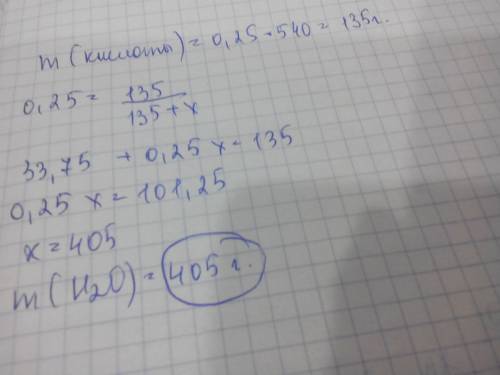 m(кислоты) = 0,25 · 540 = 135г.
0,25 = 135 / 135 + x
33,75 + 0,25 x = 135
0,25 x = 101,25
x = 405
m(H2O) = 405 г.